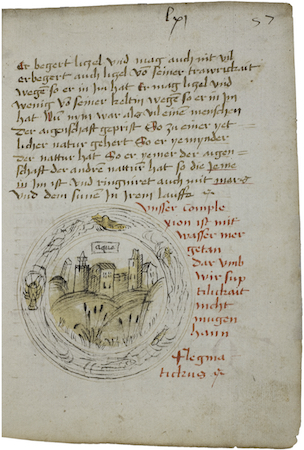 lxj 57
Er begert lüzel vnd mag auch nit vil
erbegert auch lüzel võ seiner trawrickait
wege so er in im hat Er mag lüzel vnd
wenig võ seiner keltin wege so er in im
hat Wiı nem war als vil eine menschen
der aigenschaft geprist So zu einer yet
licher natur gehert So er yemynder
der natur hat So er yemer der aigen
schaft der andre natur hat so die jeme
in im ist vnd ringniret auch mit
vnd dem sune in irem lauff
vnsser comple
xion ist mit
wasser mer
getan
dar vmb
wir sup
tilickait
nicht
mugen
hann
aqua
flegma
tickus